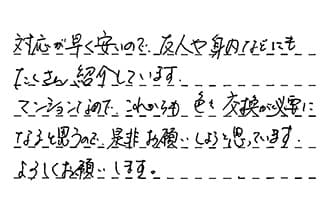 対応が早く安いので、友人や身内などにも
たくさん紹介しています。
マンションなので、これからも色々交換が必要に
なると思うので、是非お願いしようと思っています。
よろしくお願いします。